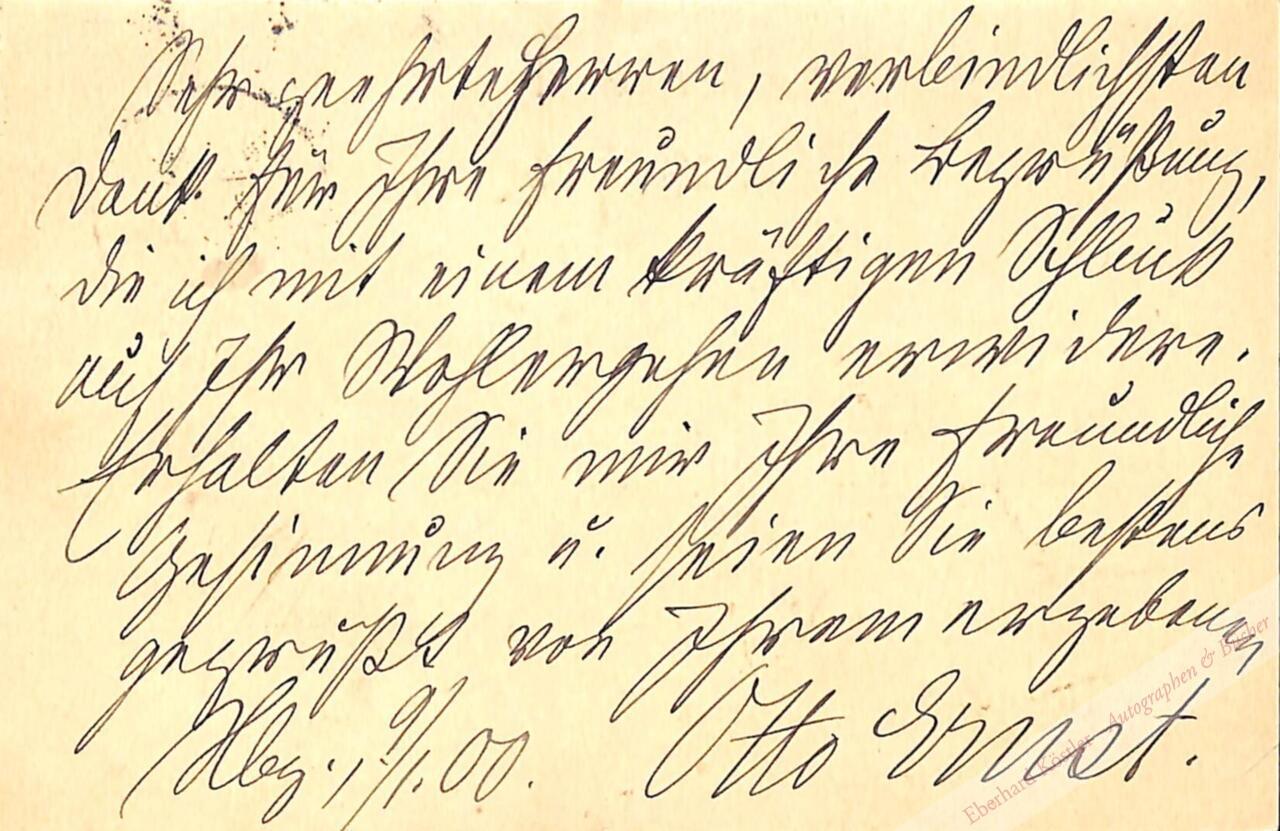 Sehr geehrte Herren, verbindlichsten
Dank für Ihre freundliche Begrüßung,
die ich mit einem kräftigen Schluck
auf Ihr Wohlergehen erwidere.
Erhalten Sie mir Ihre freundliche
Gesinnung u. seien Sie bestens
gegrüßt von Ihrem ergebenen
Hbg., 9/1.00. Otto Ernst.
Eberhard Köstler - Autographen & Bücher